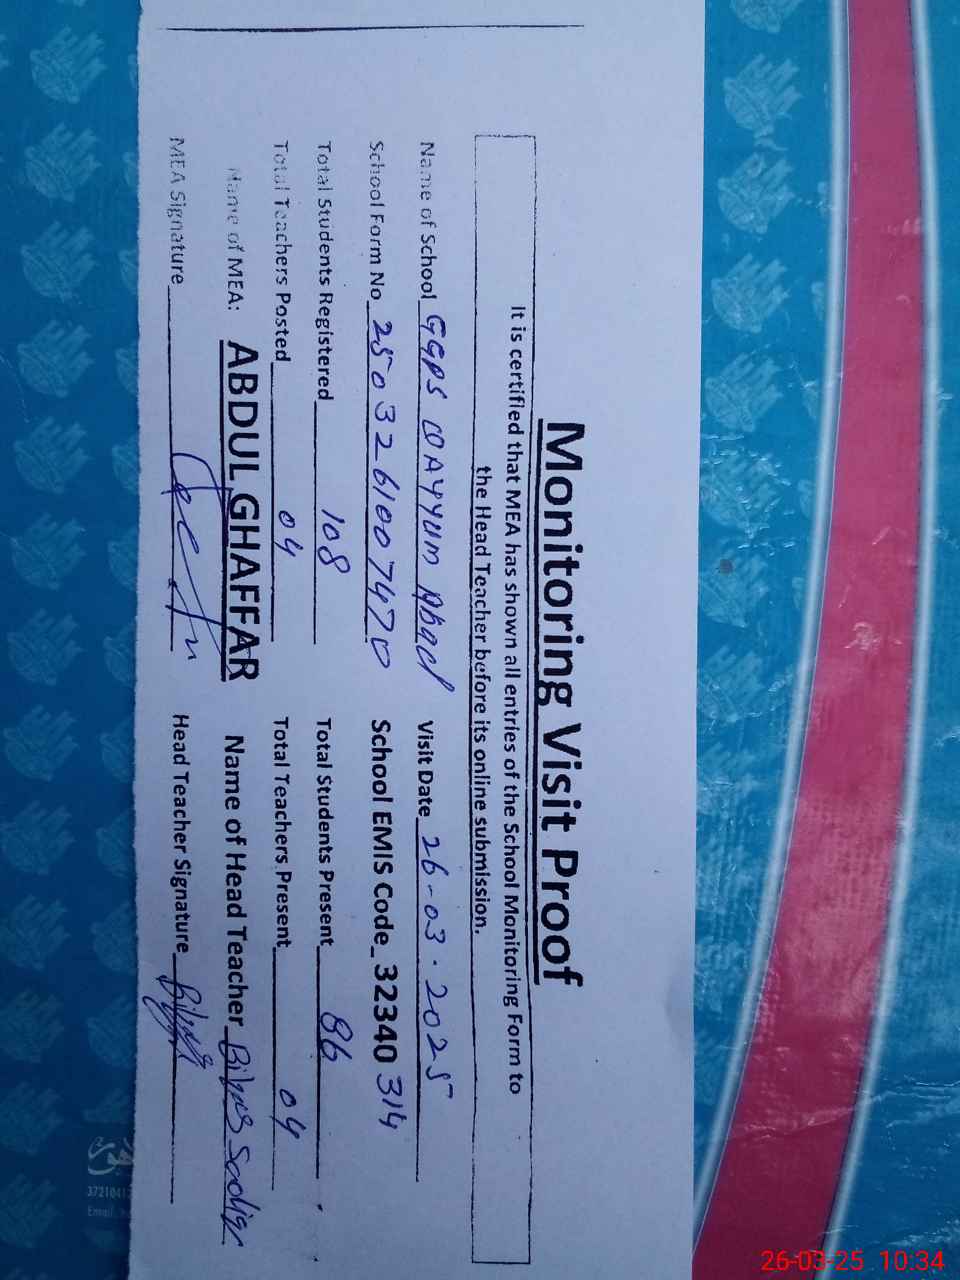 Monitoring Visit Proof
It is certified that MEA has shown all entries of the School Monitoring Form to
the Head Teacher before its online submission.
Name of School GGPS QAYYUM Abad Visit Date 26-03-2025
School Form No 2503261007470 School EMIS Code_32340 314
Total Students Registered 108 Total Students Present 86
Total Teachers Posted 04 Total Teachers Present 04
Name of MEA: ABDUL GHAFFAR Name of Head Teacher
MEA Signature Head Teacher Signature
Email:
26-03-25 10:34